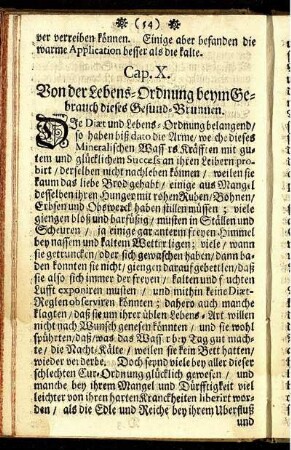 (54)
ver vertreiben können. Einige aber befanden die
warme Application besser als die kalte.
Cap. X.
Von der Lebens-Ordnung beym Ge-
brauch dieses Gesund-Brunnen.
DJe Diæt und Lebens-Ordnung belangend/
so haben biß dato die Arme/ welche dieses
Mineralischen Wassers Kräfften mit gu-
tem und glücklichem Success an ihren Leibern pro-
birt/ derselben nicht nachleben können/ weilen sie
kaum das liebe Brod gehabt/ einige aus Mangel
desselben ihren Hunger mit rohen Ruben/Böhnen/
Erbsen und Obswerck haben stillen müssen; viele
giengen bloß und barfüßig/ musten in Ställen und
Scheuren/ ja einige gar unterm freyen Himmel
bey nassem und kaltem Wetter ligen; viele/ wann
sie getruncken/ oder sich gewaschen haben/ dann ba-
den konnten sie nicht/ giengen darauf bettlen/ daß
sie also sich immer der freyen/ kalten und feuchten
Lufft exponiren musten/ und mithin keine Diæt-
Reglen observiren könnten; dahero auch manche
klagten/ daß sie um ihrer üblen Lebens-Art willen
nicht nach Wunsch genesen könnten/ und sie wohl
spührten/ daß/ was das Wasser bey Tag gut mach-
te/ die Nacht-Kälte/ weilen sie kein Bett hatten/
wieder verderbe. Doch seynd viele bey aller dieser
schlechten Cur-Ordnung glücklich gewesen/ und
manche bey ihrem Mangel und Dürfftigkeit viel
leichter von ihren harten Kranckheiten liberirt wor-
den/ als die Edle und Reiche bey ihrem Uberfluß
und